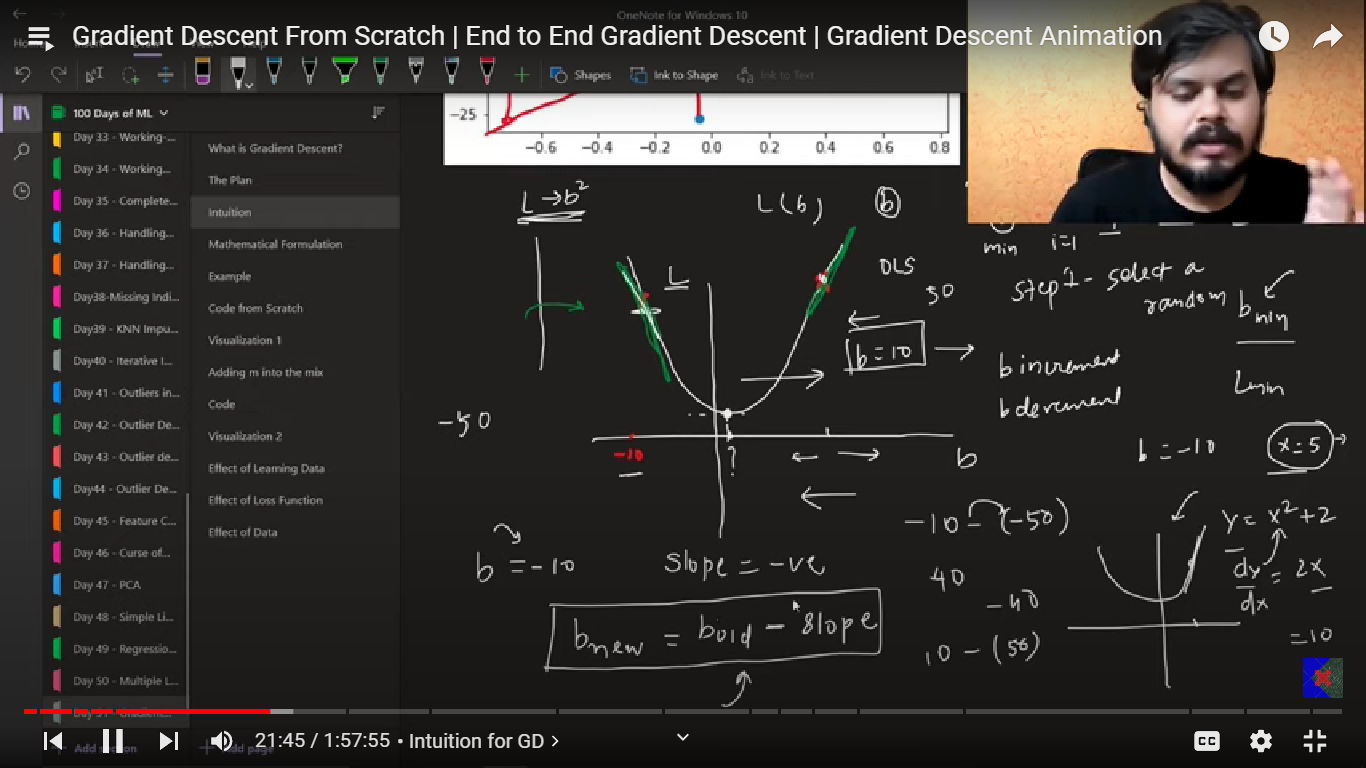 OneNote for Windows 10
Gradient Descent From Scratch | End to End Gradient Descent | Gradient Descent Animation
Shapes
Ink to Shape
Ink to Text
100 Days of ML
Day 33 - Working-...
Day 34 - Working...
Day 35 - Complete...
Day 36 - Handling...
Day 37 - Handling...
Day38-Missing Indi...
Day39 - KNN Impu...
Day40 - Iterative I...
Day 41 - Outliers in...
Day 42 - Outlier De...
Day 43 - Outlier de...
Day44 - Outlier De...
Day 45 - Feature C...
Day 46 - Curse of...
Day 47 - PCA
Day 48 - Simple Li...
Day 49 - Regressio...
Day 50 - Multiple L...
Day 51 - Gradient...
Add section
What is Gradient Descent?
The Plan
Intuition
Mathematical Formulation
Example
Code from Scratch
Visualization 1
Adding m into the mix
Code
Visualization 2
Effect of Learning Data
Effect of Loss Function
Effect of Data
Add page
−25
−0.6 −0.4 −0.2 0.0 0.2 0.4 0.6 0.8
L → b²
L(b) b
L
OLS
50
b = 10
-50
-10
?
b
min i=1
step 1 - select a
random b min
b increment
b decrement
Lmin
b = -10 x = 5
b = -10
slope = -ve
bnew = bold - slope
-10 - (-50)
40
-40
10 - (50)
y = x² + 2
dy/dx = 2x
= 10
21:45 / 1:57:55 • Intuition for GD >
CC